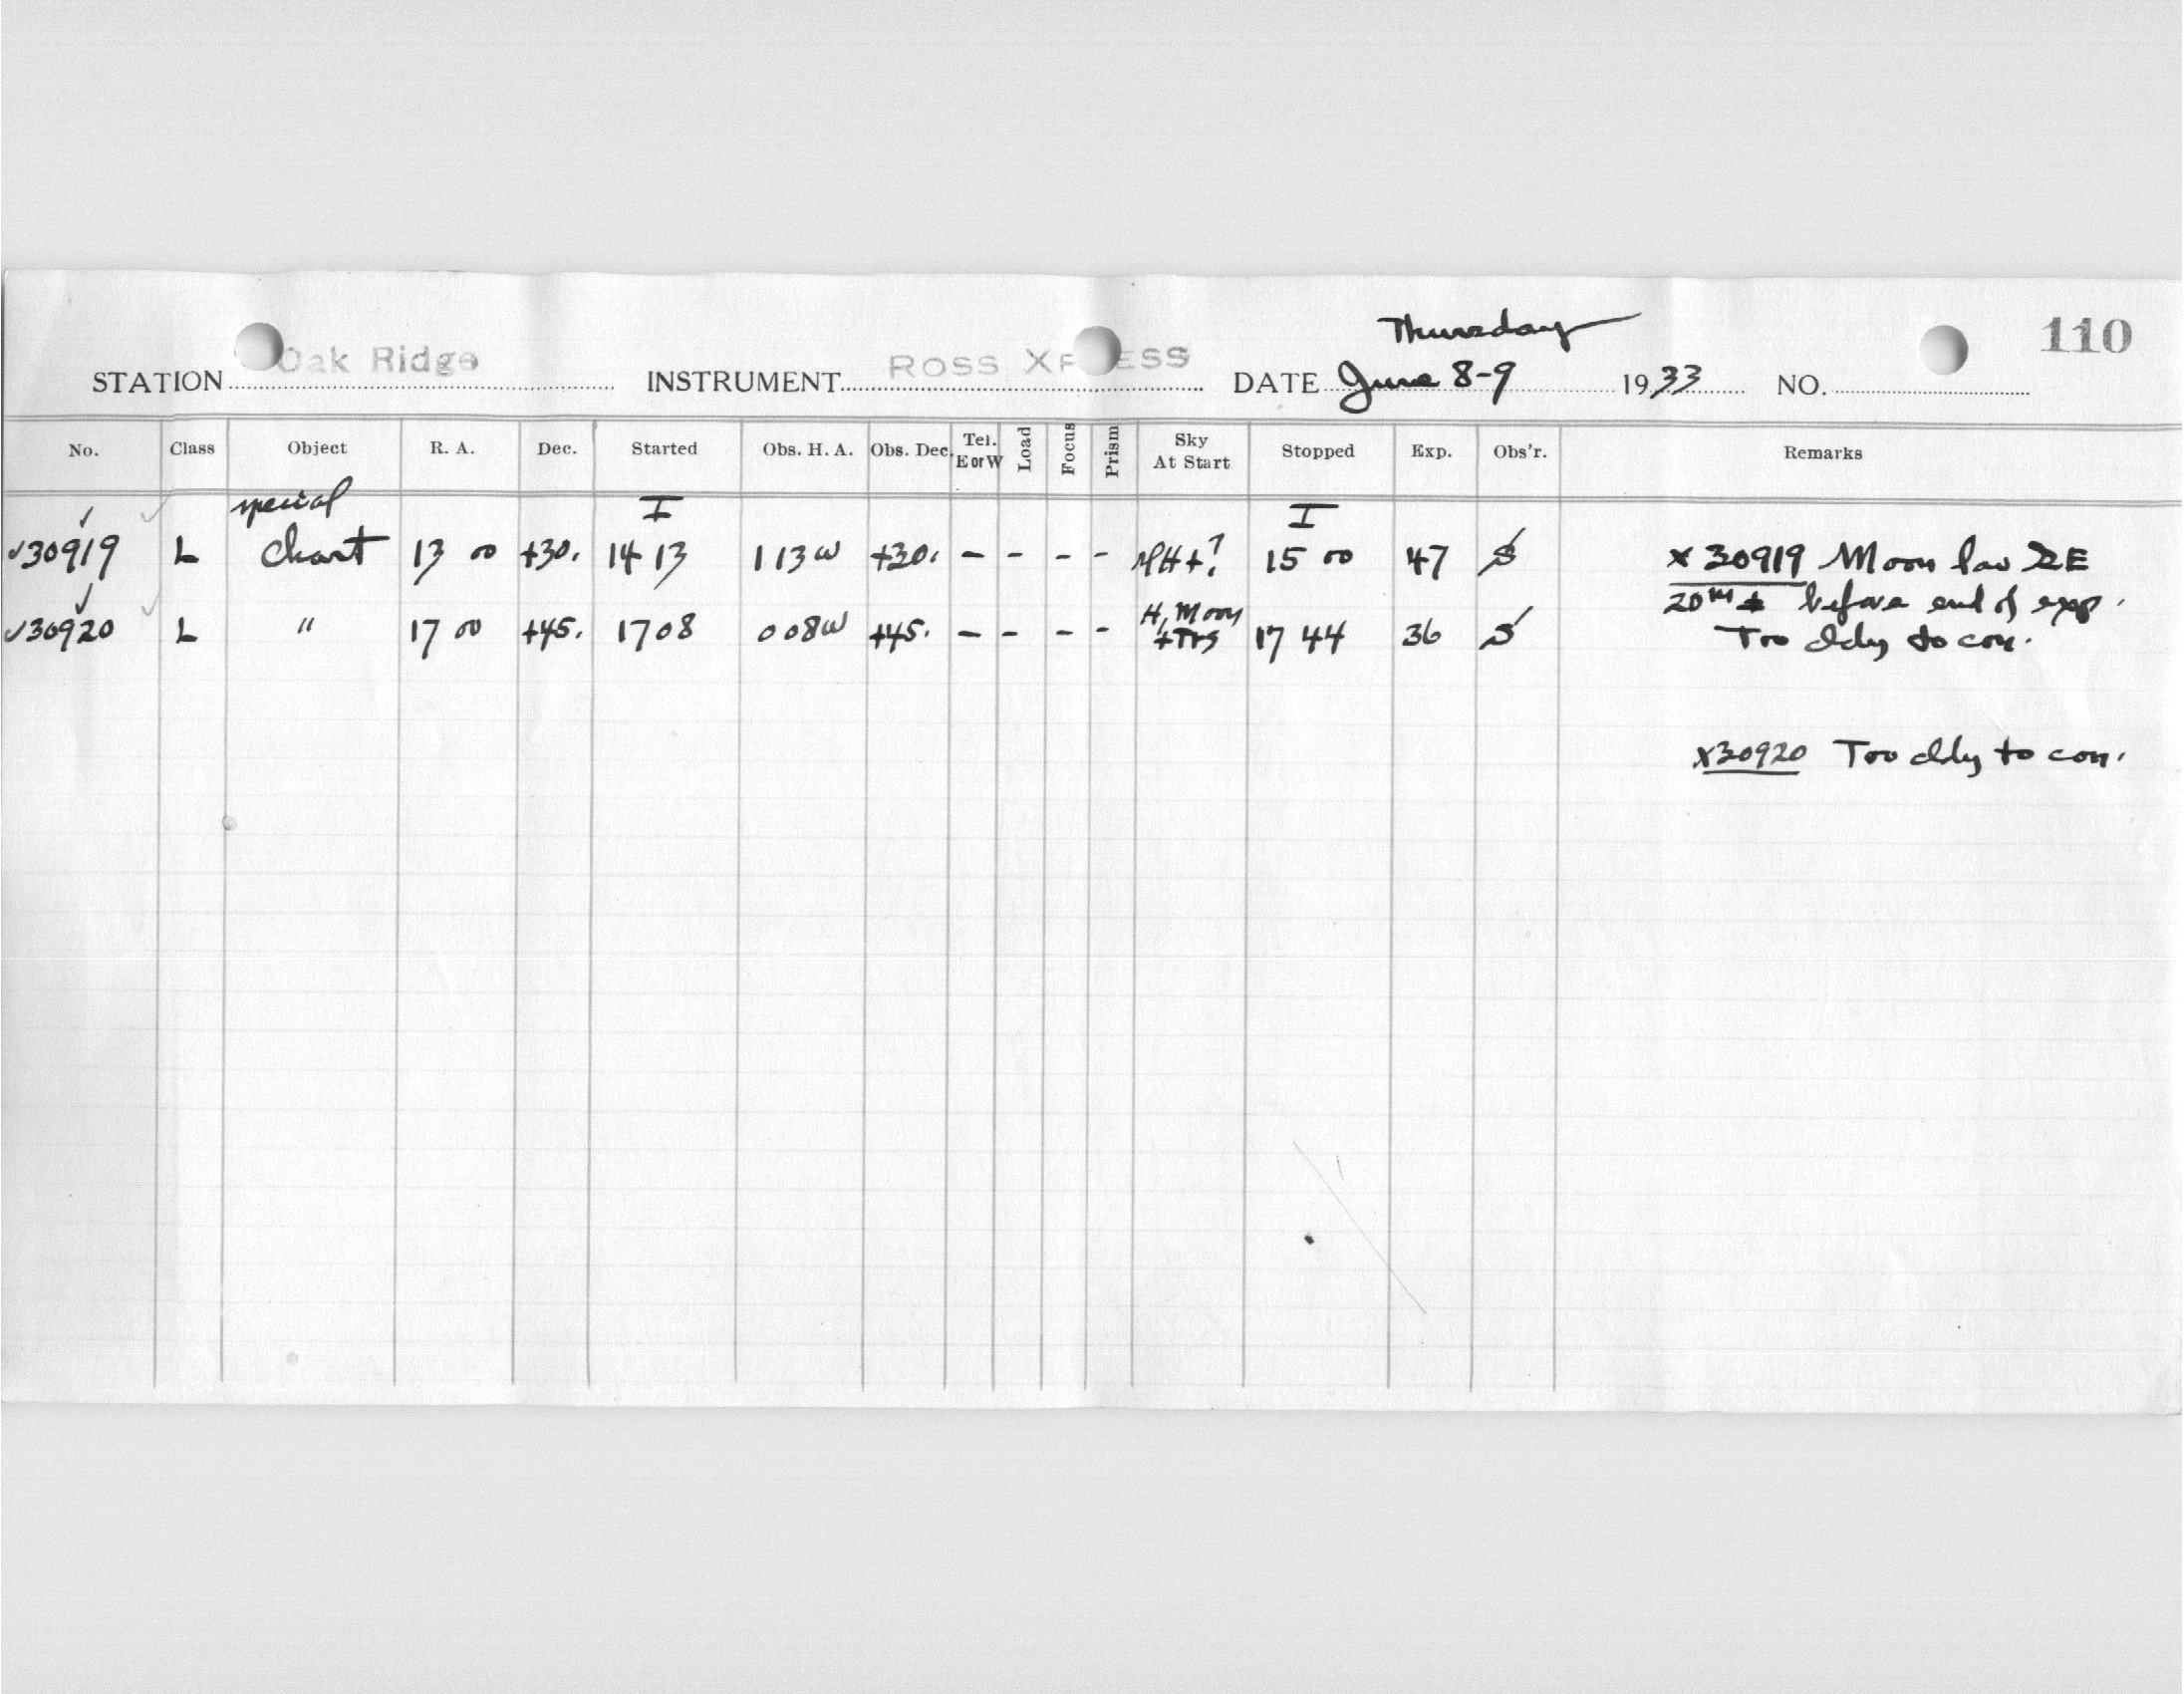 Thursday
110
STATION Oak Ridge INSTRUMENT ROSS XPRESS DATE June 8-9 1933 NO.
No. Class Object R. A. Dec. Started Obs. H. A. Obs. Dec. Tel. E or W Load Focus Prism Sky At Start Stopped Exp. Obs'r. Remarks
special I I
✓30919 L Chart 13 00 +30. 14 13 1 13 W +30. - - - - H+? 15 00 47 S x 30919 Moon low SE
20m ± before end of exp.
✓30920 L " 17 00 +45. 17 08 0 08 W +45. - - - - H, Moon 17 44 36 S Too cldy to con.
x30920 Too cldy to con.